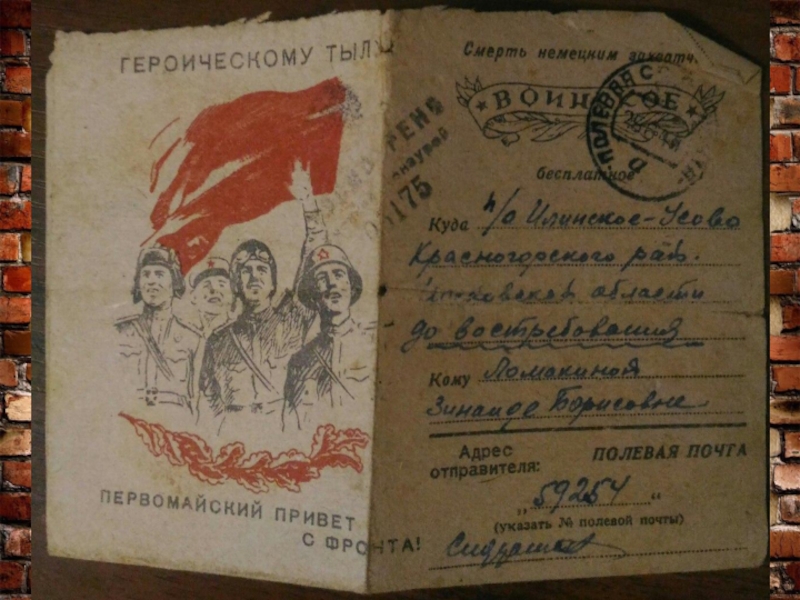 ГЕРОИЧЕСКОМУ ТЫЛУ
ПЕРВОМАЙСКИЙ ПРИВЕТ
С ФРОНТА!
Смерть немецким
ВОИНСКОЕ
ПОЛЕВАЯ
бесплатное
175
Куда п/о Илинское-Усово
Красногорского рай.
Московской области
до востребования
Кому Ломакиной
Зинаиде Борисовне
Адрес отправителя:
ПОЛЕВАЯ ПОЧТА
„59254“
(указать № полевой почты)